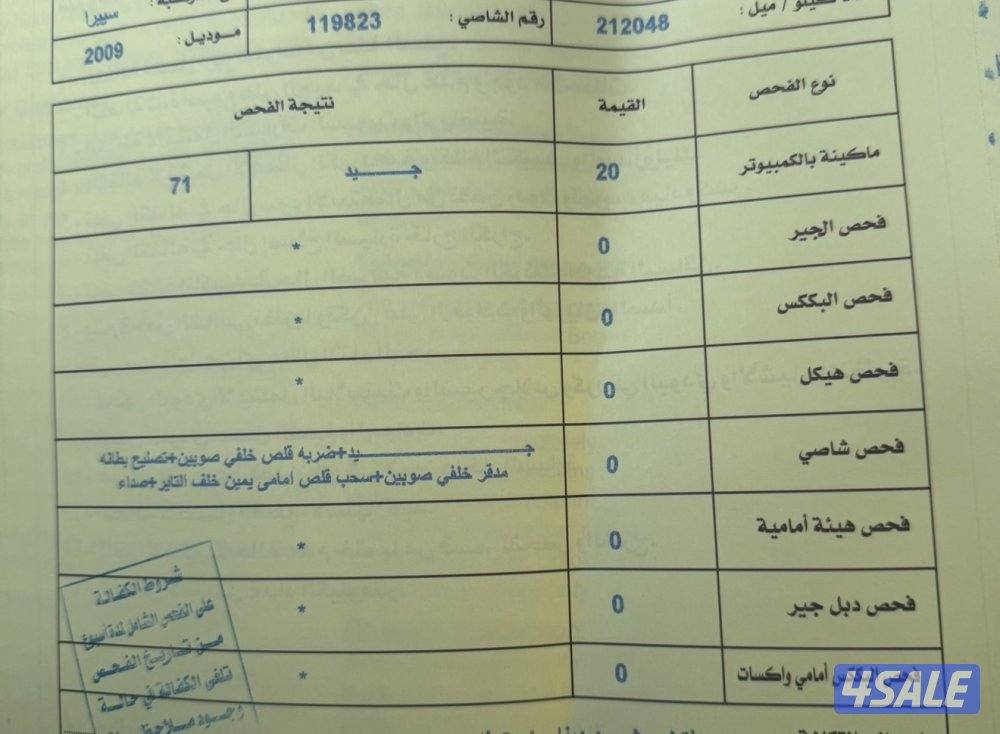 كيلو / ميل : 212048 رقم الشاصي : 119823 سييرا
موديل : 2009
نوع الفحص القيمة نتيجة الفحص
ماكينة بالكمبيوتر 20 جـــــيد 71
فحص الجير 0 *
فحص البككس 0 *
فحص هيكل 0 *
فحص شاصي 0 جـــــيد+ضربه قلص خلفي صوبين+تصليح بطانه
مدقر خلفي صوبين+سحب قلص أمامى يمين خلف التاير+صداء
فحص هيئة أمامية 0 *
فحص دبل جير 0 *
فحص البككس أمامي واكسات 0 *
شروط الكفالة
على الفحص الشامل لمدة أسبوع
مـن تـاريـخ الفحـص
تلغى الكفالة في حـالـة
وجـود
4SALE